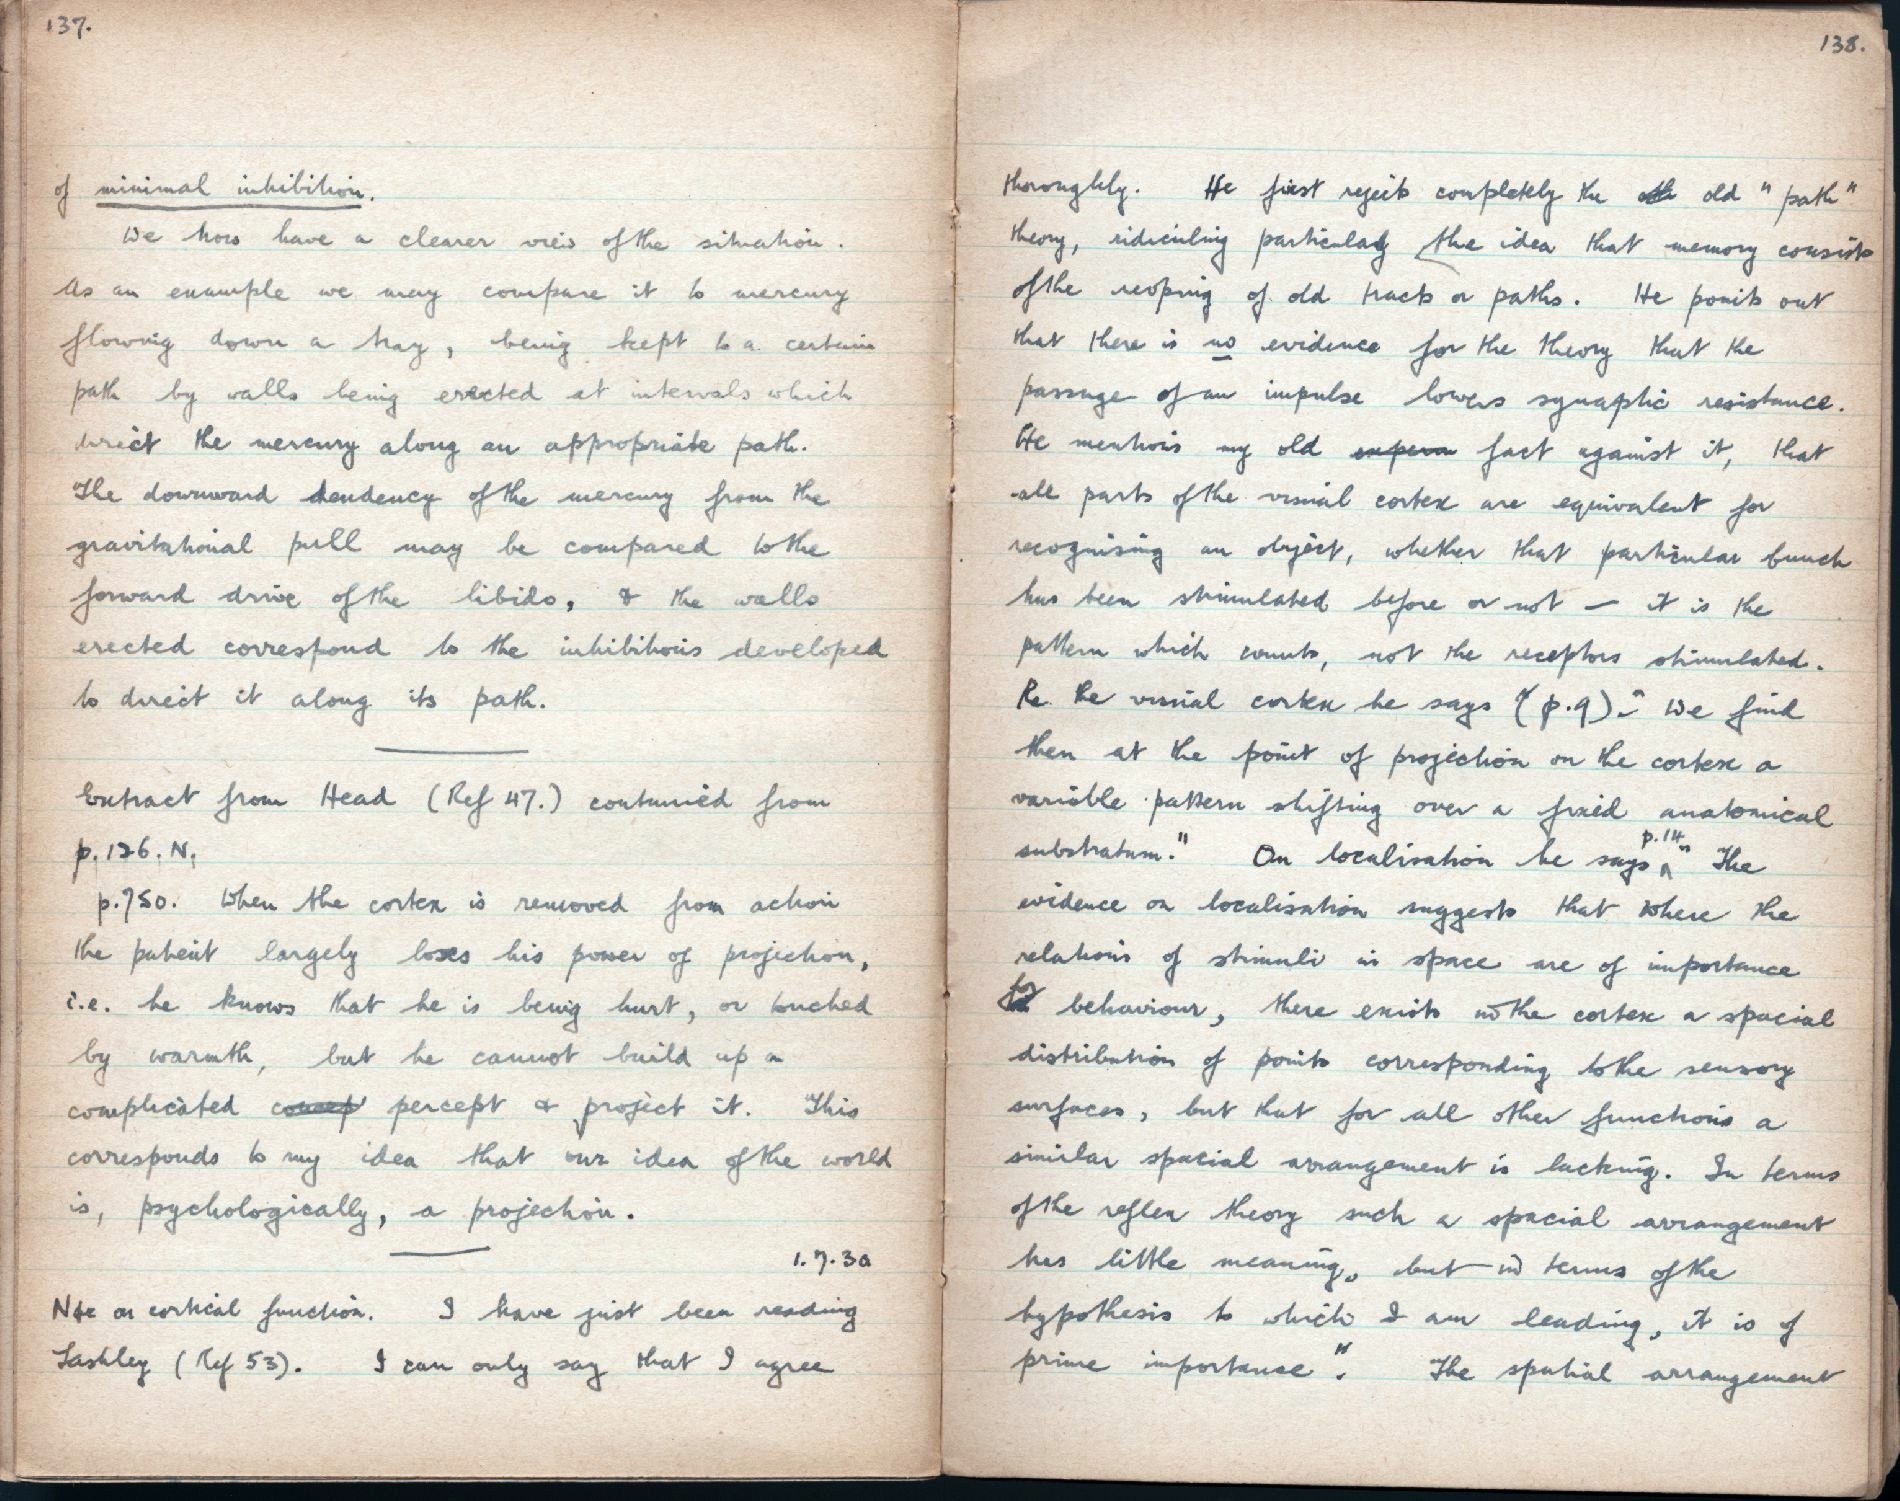 137.
of minimal inhibition.
We now have a clearer view of the situation.
As an example we may compare it to mercury
flowing down a tray, being kept to a certain
path by walls being erected at intervals which
direct the mercury along an appropriate path.
The downward tendency of the mercury from the
gravitational pull may be compared to the
forward drive of the libido, & the walls
erected correspond to the inhibitions developed
to direct it along its path.
Extract from Head (Ref 47.) continued from
p. 126. N.
p.750. When the cortex is removed from action
the patient largely loses his power of projection,
i.e. he knows that he is being hurt, or touched
by warmth, but he cannot build up a
complicated concep percept & project it. This
corresponds to my idea that our idea of the world
is, psychologically, a projection.
1.7.30
Note on cortical function. I have just been reading
Lashley (Ref 53). I can only say that I agree
138.
thoroughly. He first rejects completely the oth old "path"
theory, ridiculing particularly the idea that memory consists
of the reoping of old tracts or paths. He points out
that there is no evidence for the theory that the
passage of an impulse lowers synaptic resistance.
He mentions my old experim fact against it, that
all parts of the visual cortex are equivalent for
recognising an object, whether that particular bunch
has been stimulated before or not — it is the
pattern which counts, not the receptors stimulated.
Re the visual cortex he says (p.9):" We find
then at the point of projection on the cortex a
variable pattern shifting over a fixed anatomical
substratum." On localisation he says p.14 " The
evidence on localisation suggests that where the
relations of stimuli in space are of importance
for behaviour, there exists in the cortex a spacial
distribution of points corresponding to the sensory
surfaces, but that for all other functions a
similar spacial arrangement is lacking. In terms
of the reflex theory such a spacial arrangement
has little meaning, but in terms of the
hypothesis to which I am leading, it is of
prime importance". The spatial arrangement